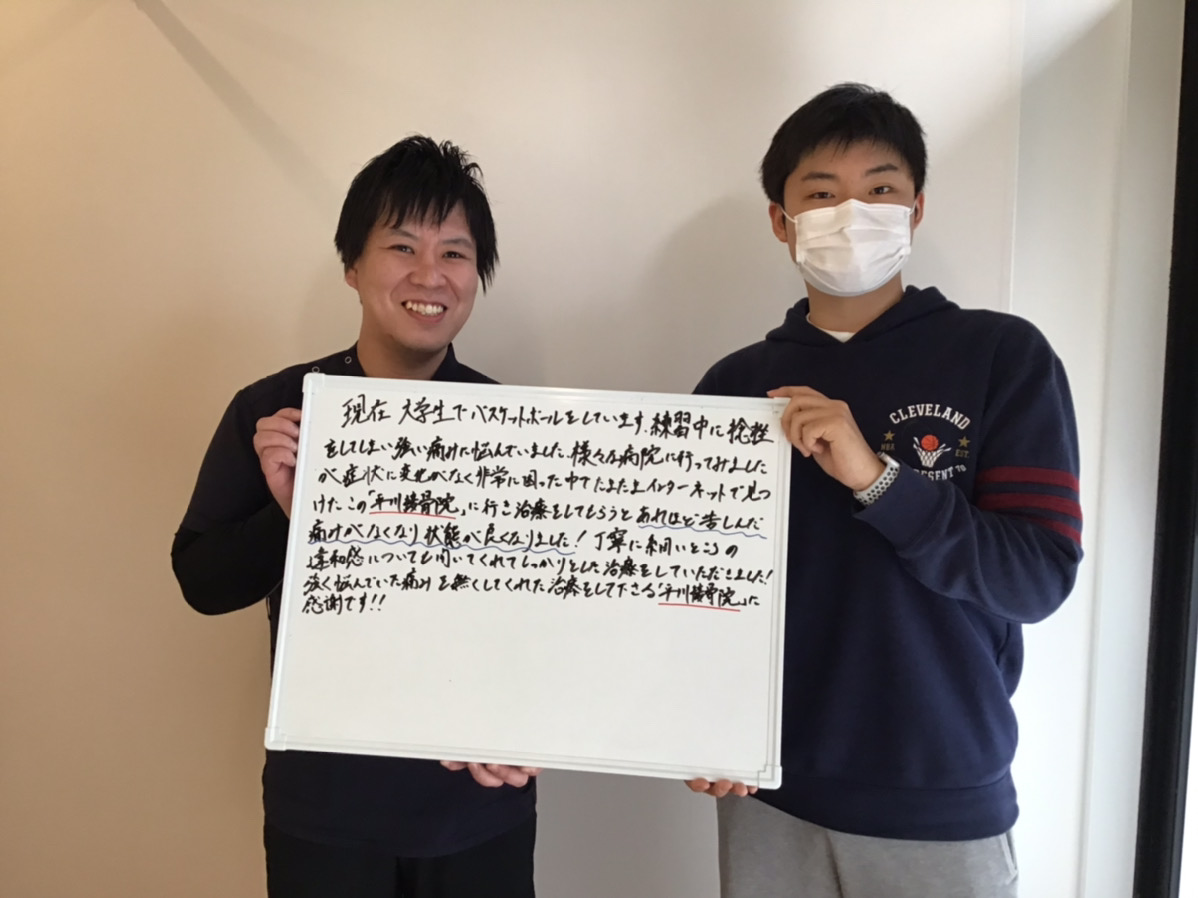 現在 大学生でバスケットボールをしています。練習中に捻挫
をしてしまい強い痛みに悩んでいました。様々な病院に行ってみました
が症状に変化がなく非常に困った中でたまたまインターネットで見つ
けたこの「平川接骨院」に行き治療をしてもらうとあれほど苦しんだ
痛みがなくなり状態が良くなりました！丁寧に細いところの
違和感についても聞いてくれてしっかりとした治療をしていただきました！
強く悩んでいた痛みを無くしてくれた治療をして下さる「平川接骨院」に
感謝です!!
CLEVELAND
NBA EST.